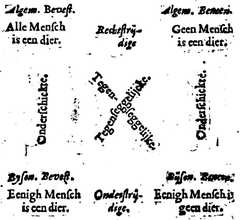 Algem. Bevest.
Alle Mensch
is een dier.
Rechtstrij-
dige
Algem. Benoen.
Geen Mensch
is een dier.
Onderschickte.
Tegen-
Tegenseggelijcke.
seggelijcke.
Onderschickte.
Byson. Bevest.
Eenigh Mensch
is een dier.
Onderstrij-
dige.
Byson.
Eenigh Mensch is
geen dier.